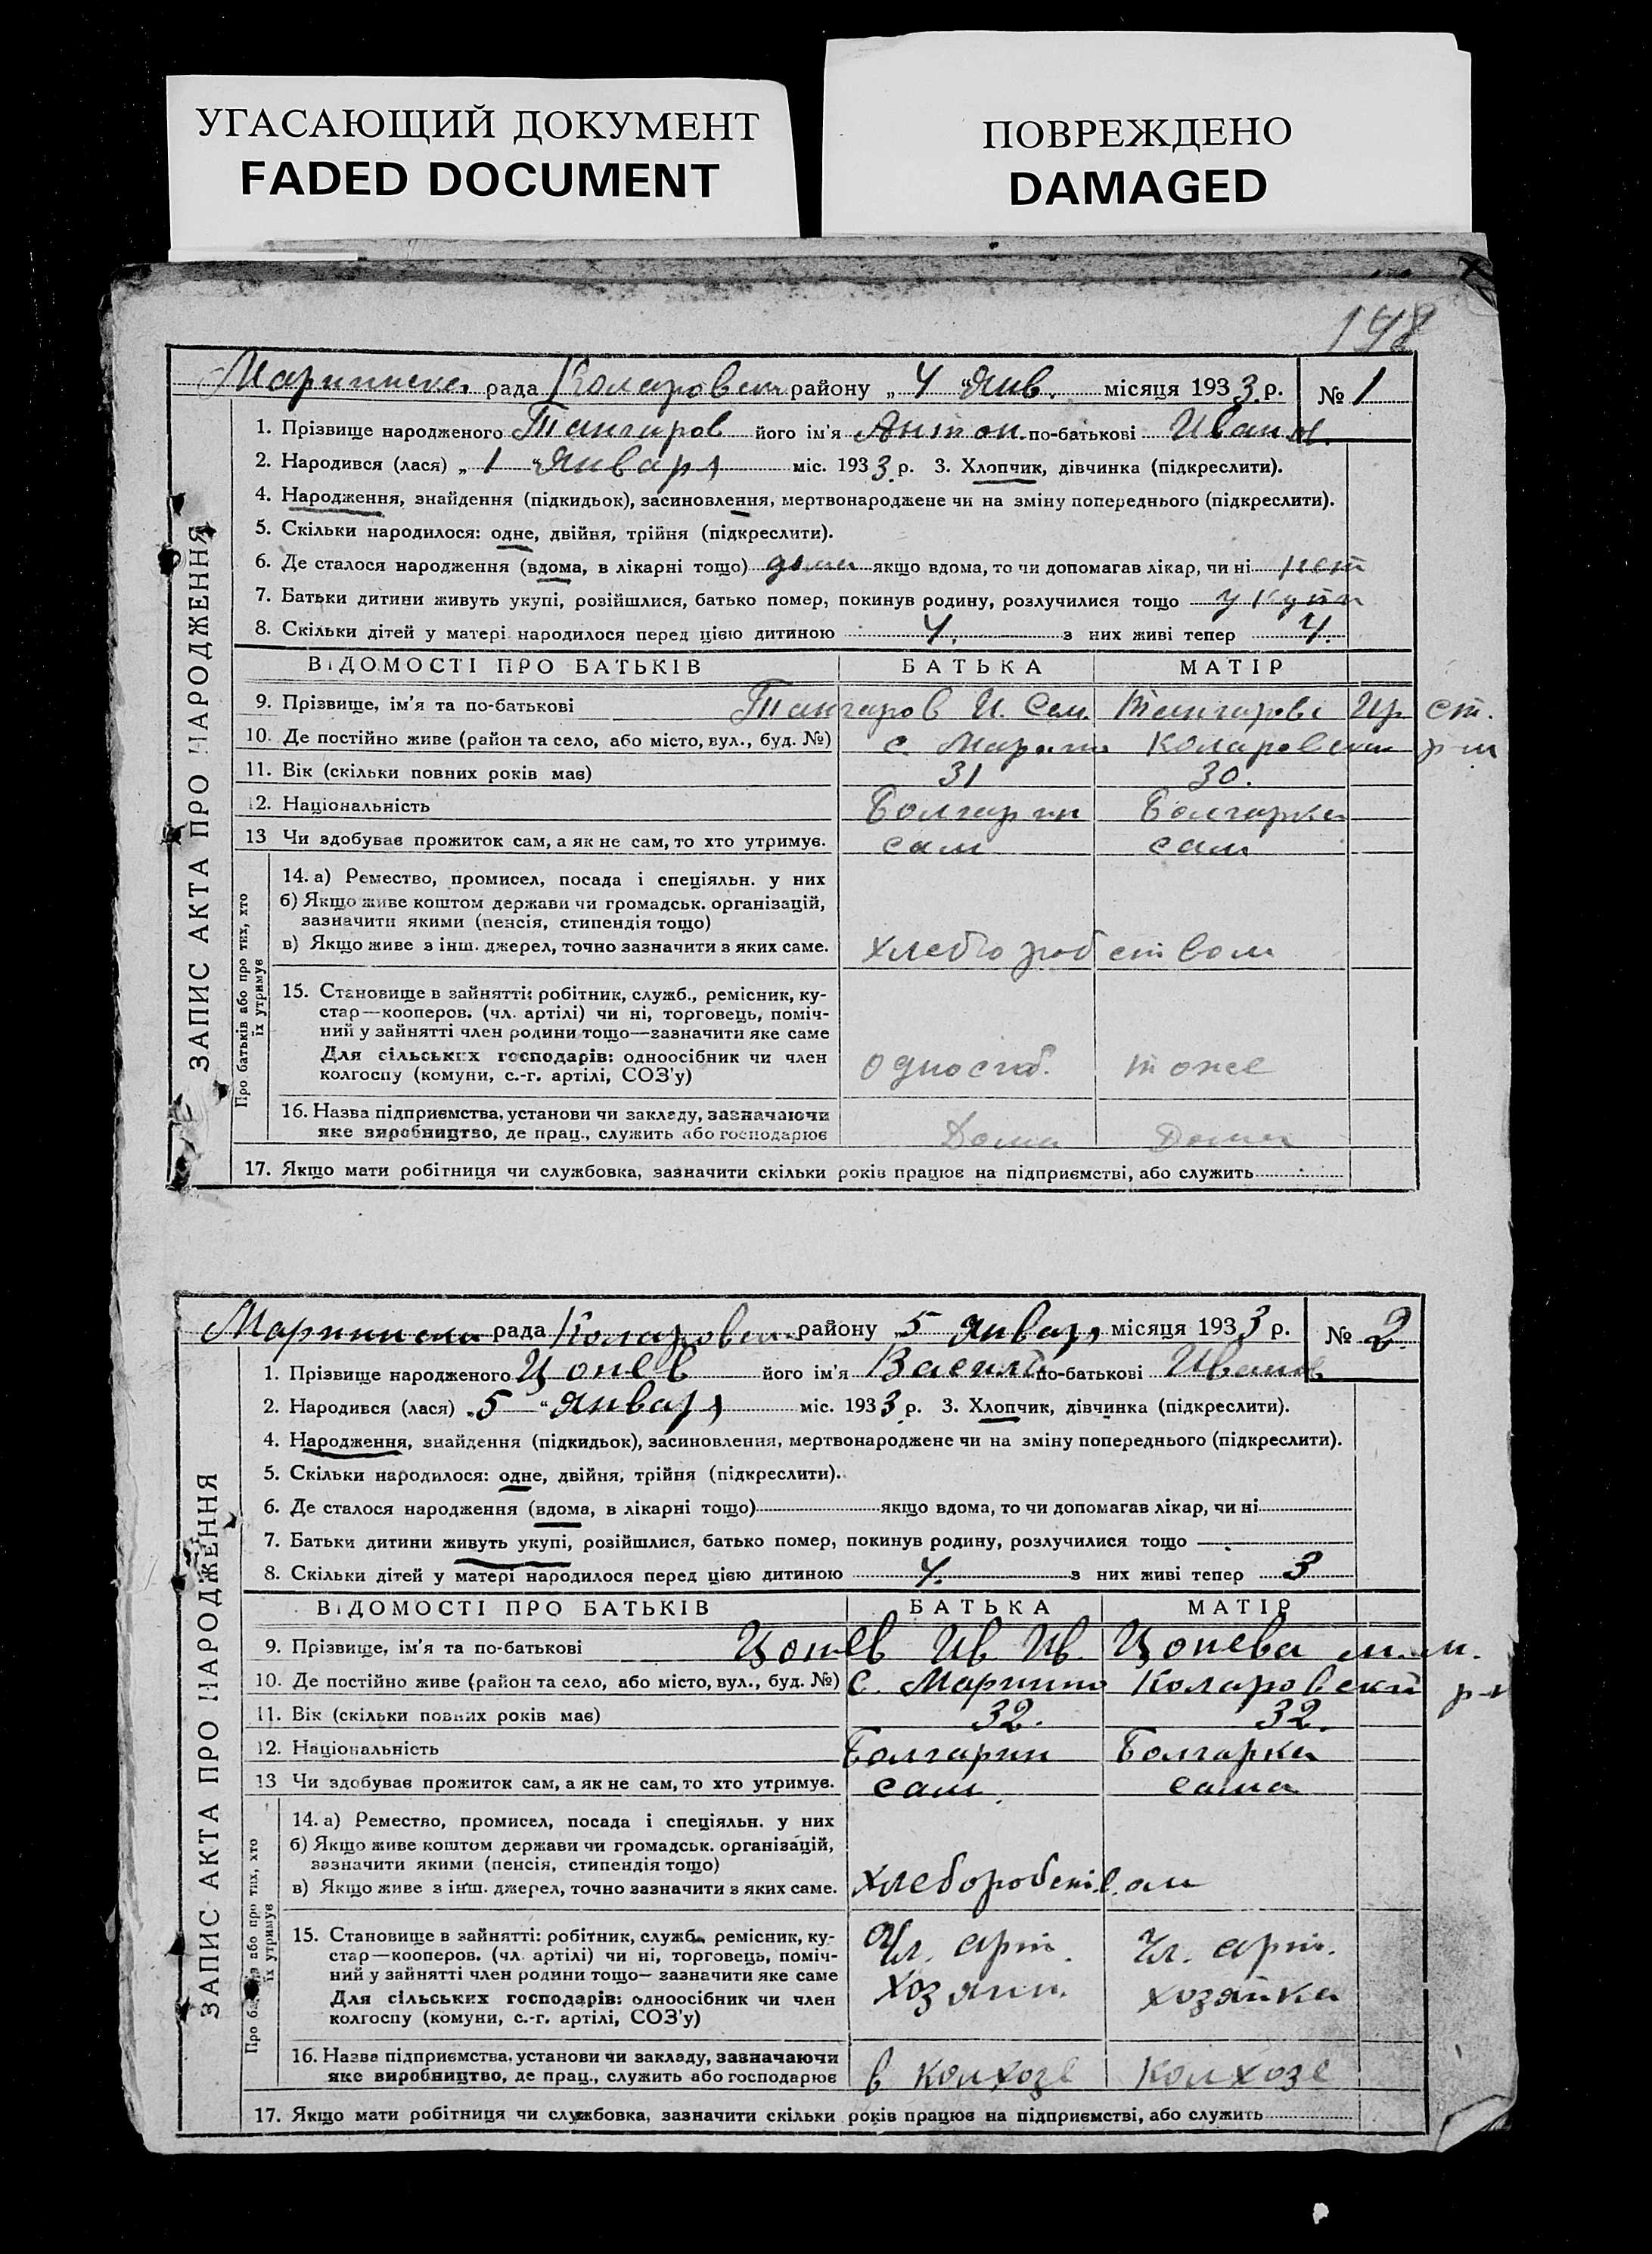 УГАСАЮЩИЙ ДОКУМЕНТ
FADED DOCUMENT
ПОВРЕЖДЕНО
DAMAGED
198
рада Коларовск району „ 4 “ Янв. місяця 1933 р. № 1
ЗАПИС АКТА ПРО НАРОДЖЕННЯ
1. Прізвище народженого Тангаров його ім'я Антон по-батькові Иванов.
2. Народився (лася) „ 1 “ Января міс. 1933 р. 3. Хлопчик, дівчинка (підкреслити).
4. Народження, знайдення (підкидьок), засиновлення, мертвонароджене чи на зміну попереднього (підкреслити).
5. Скільки народилося: одне, двійня, трійня (підкреслити).
6. Де сталося народження (вдома, в лікарні тощо) дома якщо вдома, то чи допомагав лікар, чи ні нет
7. Батьки дитини живуть укупі, розійшлися, батько помер, покинув родину, розлучилися тощо укупи
8. Скільки дітей у матері народилося перед цією дитиною 4. з них живі тепер 4.
ВІДОМОСТІ ПРО БАТЬКІВ БАТЬКА МАТІР
9. Прізвище, ім'я та по-батькові Тангаров И. Сем. Тангарова Ир ст.
10. Де постійно живе (район та село, або місто, вул., буд. №) с. Марино Коларовский р-н
11. Вік (скільки повних років має) 31 30.
12. Національність Болгарин Болгарка
13 Чи здобуває прожиток сам, а як не сам, то хто утримує. сам сам
Про батьків або про тих, хто їх утримує
14. а) Ремество, промисел, посада і спеціяльн. у них
б) Якщо живе коштом держави чи громадськ. організацій,
зазначити якими (пенсія, стипендія тощо)
в) Якщо живе з інш. джерел, точно зазначити з яких саме. хлеборобством
15. Становище в зайнятті: робітник, служб., ремісник, ку-
стар—кооперов. (чл. артілі) чи ні, торговець, поміч-
ний у зайнятті член родини тощо—зазначити яке саме
Для сільських господарів: одноосібник чи член одноособ. тоже
колгоспу (комуни, с.-г. артілі, СОЗ'у)
16. Назва підприємства, установи чи закладу, зазначаючи
яке виробництво, де прац., служить або господарює Дома Дома
17. Якщо мати робітниця чи службовка, зазначити скільки років працює на підприємстві, або служить
рада Коларовск району „5 Января місяця 1933 р. № 2
ЗАПИС АКТА ПРО НАРОДЖЕННЯ
1. Прізвище народженого Цонев його ім'я Василь по-батькові Иванов
2. Народився (лася) „5 “ Января міс. 1933 р. 3. Хлопчик, дівчинка (підкреслити).
4. Народження, знайдення (підкидьок), засиновлення, мертвонароджене чи на зміну попереднього (підкреслити).
5. Скільки народилося: одне, двійня, трійня (підкреслити).
6. Де сталося народження (вдома, в лікарні тощо) якщо вдома, то чи допомагав лікар, чи ні
7. Батьки дитини живуть укупі, розійшлися, батько помер, покинув родину, розлучилися тощо
8. Скільки дітей у матері народилося перед цією дитиною 4. з них живі тепер 3
ВІДОМОСТІ ПРО БАТЬКІВ БАТЬКА МАТІР
9. Прізвище, ім'я та по-батькові Цонев Ив Ив. Цонева м. м.
10. Де постійно живе (район та село, або місто, вул., буд. №) с. Марино Коларовский р-н
11. Вік (скільки повних років має) 32. 32.
12. Національність Болгарин Болгарка
13 Чи здобуває прожиток сам, а як не сам, то хто утримує. сам сама
Про батьків або про тих, хто їх утримує
14. а) Ремество, промисел, посада і спеціяльн. у них
б) Якщо живе коштом держави чи громадськ. організацій,
зазначити якими (пенсія, стипендія тощо)
в) Якщо живе з інш. джерел, точно зазначити з яких саме. хлеборобством
15. Становище в зайнятті: робітник, служб., ремісник, ку-
стар—кооперов. (чл. артілі) чи ні, торговець, поміч- Чл. арт. Чл. арт.
ний у зайнятті член родини тощо— зазначити яке саме хозяин. хозяйка
Для сільських господарів: одноосібник чи член
колгоспу (комуни, с.-г. артілі, СОЗ'у)
16. Назва підприємства, установи чи закладу, зазначаючи
яке виробництво, де прац., служить або господарює в колхозе колхозе
17. Якщо мати робітниця чи службовка, зазначити скільки років працює на підприємстві, або служить